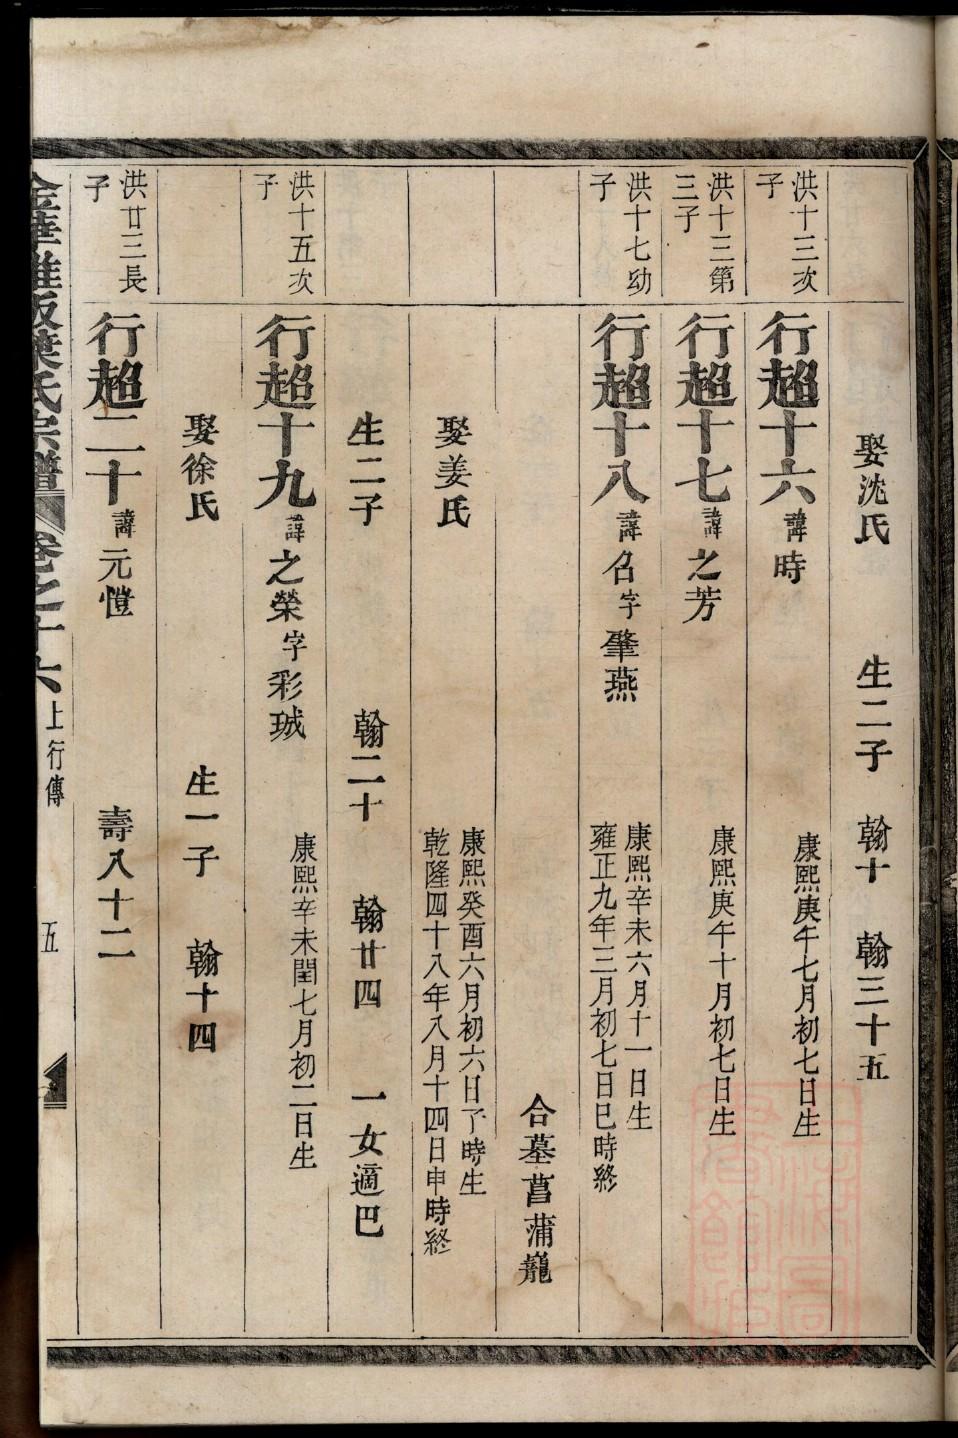 娶沈氏 生二子 翰十 翰三十五
洪十三次子
行超十六 諱時 康熙庚午七月初七日生
洪十三第三子
行超十七 諱之芳 康熙庚午十月初七日生
洪十七幼子
行超十八 諱名字肇燕 康熙辛未六月十一日生
雍正九年三月初七日巳時終
合墓菖蒲籠
娶姜氏 康熙癸酉六月初六日了時生
乾隆四十八年八月十四日申時終
生二子 翰二十 翰廿四 一女適巴
洪十五次子
行超十九 諱之榮字彩珹 康熙辛未閏七月初二日生
娶徐氏 生一子 翰十四
洪廿三長子
行超二十 諱元愷 壽八十二
葉氏宗譜 卷之十六 上行傳 五